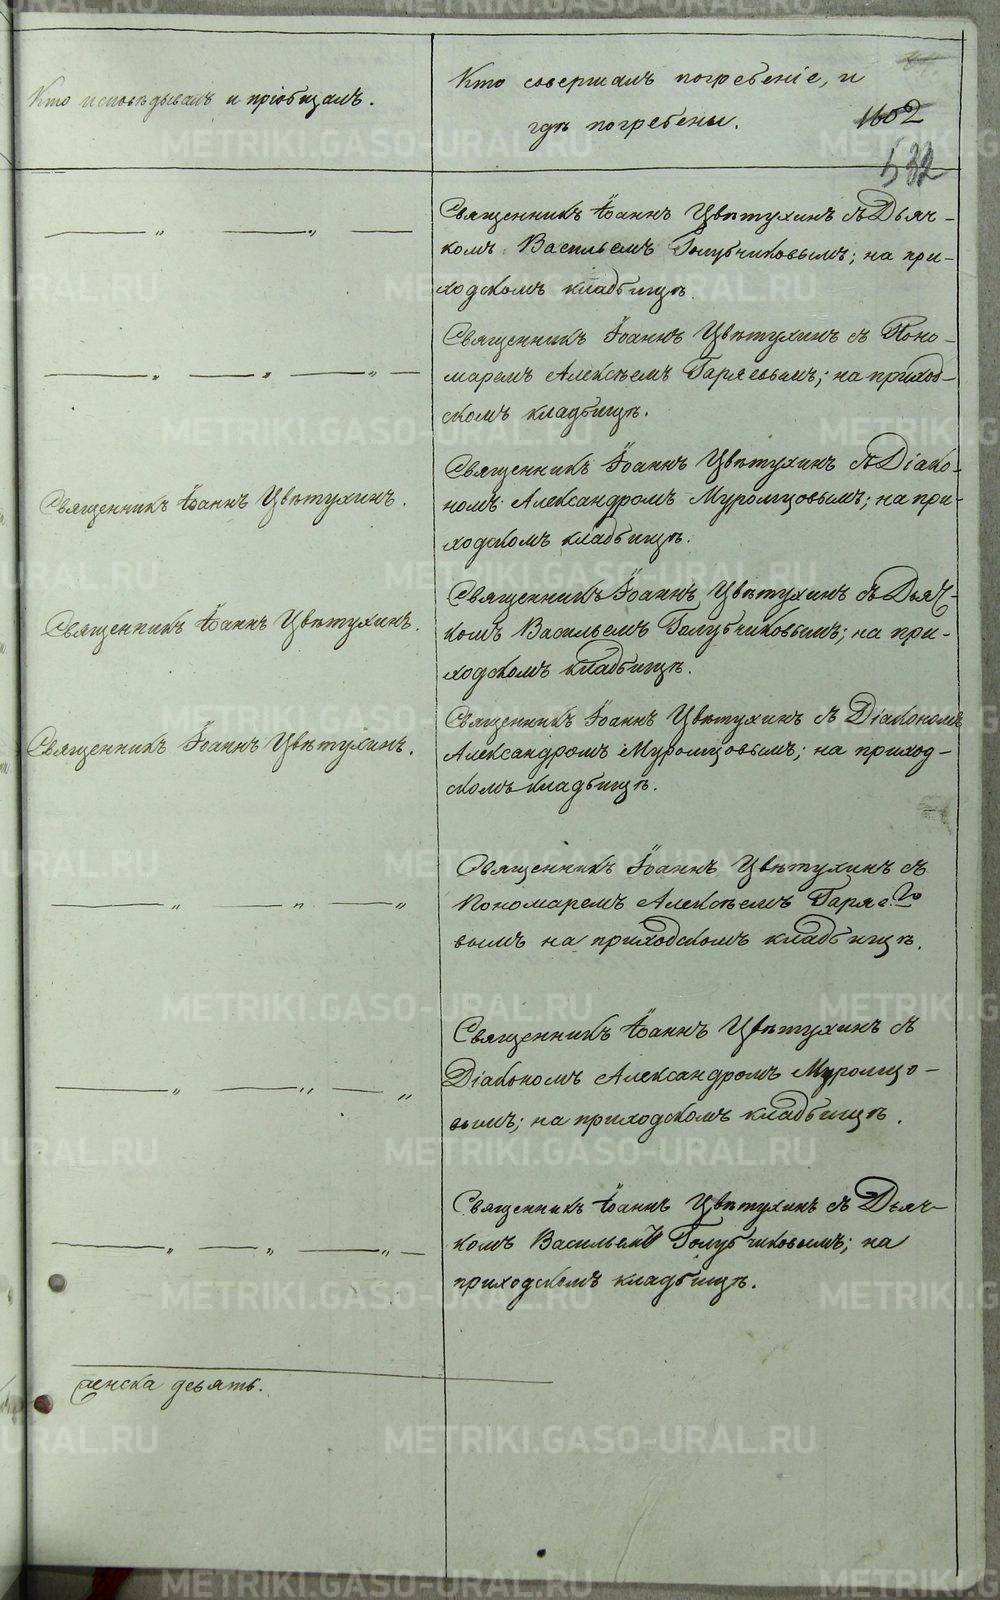 Кто исповѣдывалъ и пріобщалъ.
Кто совершалъ погребеніе, и
гдѣ погребены.
1602
532
Священникъ Іоаннъ Цвѣтухинъ съ Дьяч-
комъ Васильемъ Голубчиковымъ; на при-
ходскомъ кладбищѣ.
Священникъ Іоаннъ Цвѣтухинъ съ Поно-
маремъ Алексѣемъ Гаряевымъ; на приход-
скомъ кладбищѣ.
Священникъ Іоаннъ Цвѣтухинъ.
Священникъ Іоаннъ Цвѣтухинъ съ Діако-
номъ Александромъ Муромцовымъ; на при-
ходскомъ кладбищѣ.
Священникъ Іоаннъ Цвѣтухинъ.
Священникъ Іоаннъ Цвѣтухинъ съ Дьяч-
комъ Васильемъ Голубчиковымъ; на при-
ходскомъ кладбищѣ.
Священникъ Іоаннъ Цвѣтухинъ.
Священникъ Іоаннъ Цвѣтухинъ съ Діакономъ
Александромъ Муромцовымъ; на приход-
скомъ кладбищѣ.
Священникъ Іоаннъ Цвѣтухинъ съ
Пономаремъ Алексѣемъ Гаряе-
вымъ на приходскомъ кладбищѣ.
Священникъ Іоаннъ Цвѣтухинъ съ
Діакономъ Александромъ Муромцо-
вымъ; на приходскомъ кладбищѣ.
Священникъ Іоаннъ Цвѣтухинъ съ Дьяч-
комъ Васильемъ Голубчиковымъ; на
приходскомъ кладбищѣ.
женска девять.
METRIKI.GASO-URAL.RU